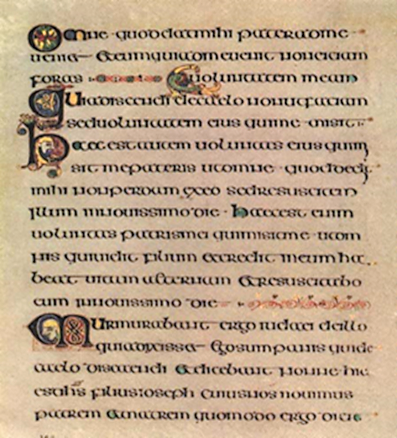 Omne quod dat mihi pater ad me
ueniet Et eum qui ad me uenit non eiciam
foras uoluntatem meam
Quia discendi de caelo non ut faciam
sed uoluntatem eius qui me misit
Haec est autem uoluntas eius qui mi
sit me patris ut omne quod dedit
mihi non perdam ex eo sed resuscitem
illum in nouissimo die Haec est enim
uoluntas patris mei qui misit me ut om
nis qui uidit filium et credit in eum ha
beat uitam aeternam Et resuscitabo
eum in nouissimo die
Murmurabant ergo iudaei de illo
quia dixisset Ego sum panis qui de
caelo discendi Et dicebant nonne hic
est filius ioseph cuius nos nouimus
patrem et matrem quomodo ergo dicit